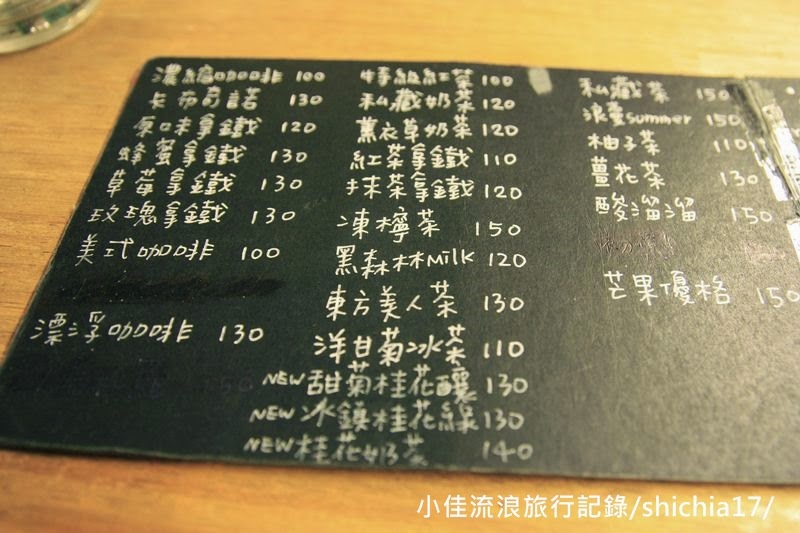 濃縮咖啡 100
卡布奇諾 130
原味拿鐵 120
蜂蜜拿鐵 130
草莓拿鐵 130
玫瑰拿鐵 130
美式咖啡 100
漂浮咖啡 130
特級紅茶 100
私藏奶茶 120
薰衣草奶茶 120
紅茶拿鐵 110
抹茶拿鐵 120
凍檸茶 150
黑森林Milk 120
東方美人茶 130
洋甘菊冰茶 110
NEW 甜菊桂花釀 130
NEW 冰鎮桂花綠 130
NEW 桂花奶茶 140
私藏茶 150
浪臺summer 150
柚子茶 110
薑花茶 130
酸溜溜 150
芒果優格 150
小佳流浪旅行記錄/shichia17/